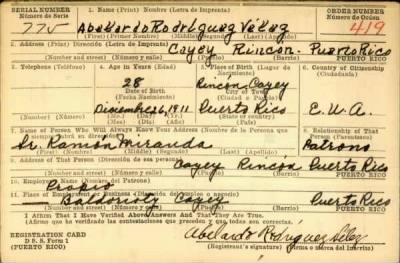 SERIAL NUMBER 1. Name (Print) Nombre (Letra de Imprenta) ORDER NUMBER
Número de Serie Número de Orden
775 Abelardo Rodríguez Vélez 419
(First) (Primer Nombre) (Middle) (Segundo Nombre) (Last) (Apellido)
2. Address (Print) Dirección (Letra de Imprenta)
Cayey Rincon. Puerto Rico
(Number and street) (Número y calle) (Town) (County) PUERTO RICO
3. Telephone (Teléfono) 4. Age in Years (Edad) 5. Place of Birth (Lugar de Nacimiento) 6. Country of Citizenship (Ciudadanía)
28 Rincon, Cayey
Date of Birth (Fecha Nacimiento)
December 6, 1911 Puerto Rico E. U. A.
7. Name of Person Who Will Always Know Your Address (Nombre de la Persona que siempre sabrá su dirección) 8. Relationship of That Person (Parentesco)
Sr. Ramón Miranda Patrono
(First) (Nombre) (Middle) (Last) (Apellido)
9. Address of That Person (Dirección de esa persona)
Cayey Rincon Puerto Rico
(Number and street) (Número y calle) PUERTO RICO
10. Employer's Name (Nombre del Patrono)
Propio
11. Place of Employment or Business (Dirección del empleo o negocio)
Baldorioty Cayey Puerto Rico
(Number and street) (Número y calle) PUERTO RICO
I Affirm That I Have Verified Above Answers And That They Are True.
Afirmo que he verificado las contestaciones que preceden y que todas son correctas.
REGISTRATION CARD
D S S. Form 1
(PUERTO RICO)
Abelardo Rodríguez Vélez
(Registrant's signature) (Firma o marca del Inscrito)